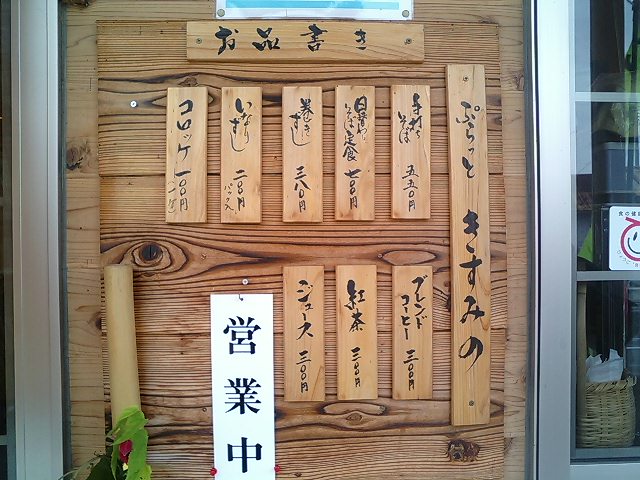 お品書き
ぷらっと きすみの
手打ちそば 五五〇円
日替わりそば定食 七〇〇円
巻きずし 三八〇円
いなりずし 二〇〇円
パック入
コロッケ 一〇〇円
ブレンドコーヒー 三〇〇円
紅茶 三〇〇円
ジュース 三〇〇円
営業中